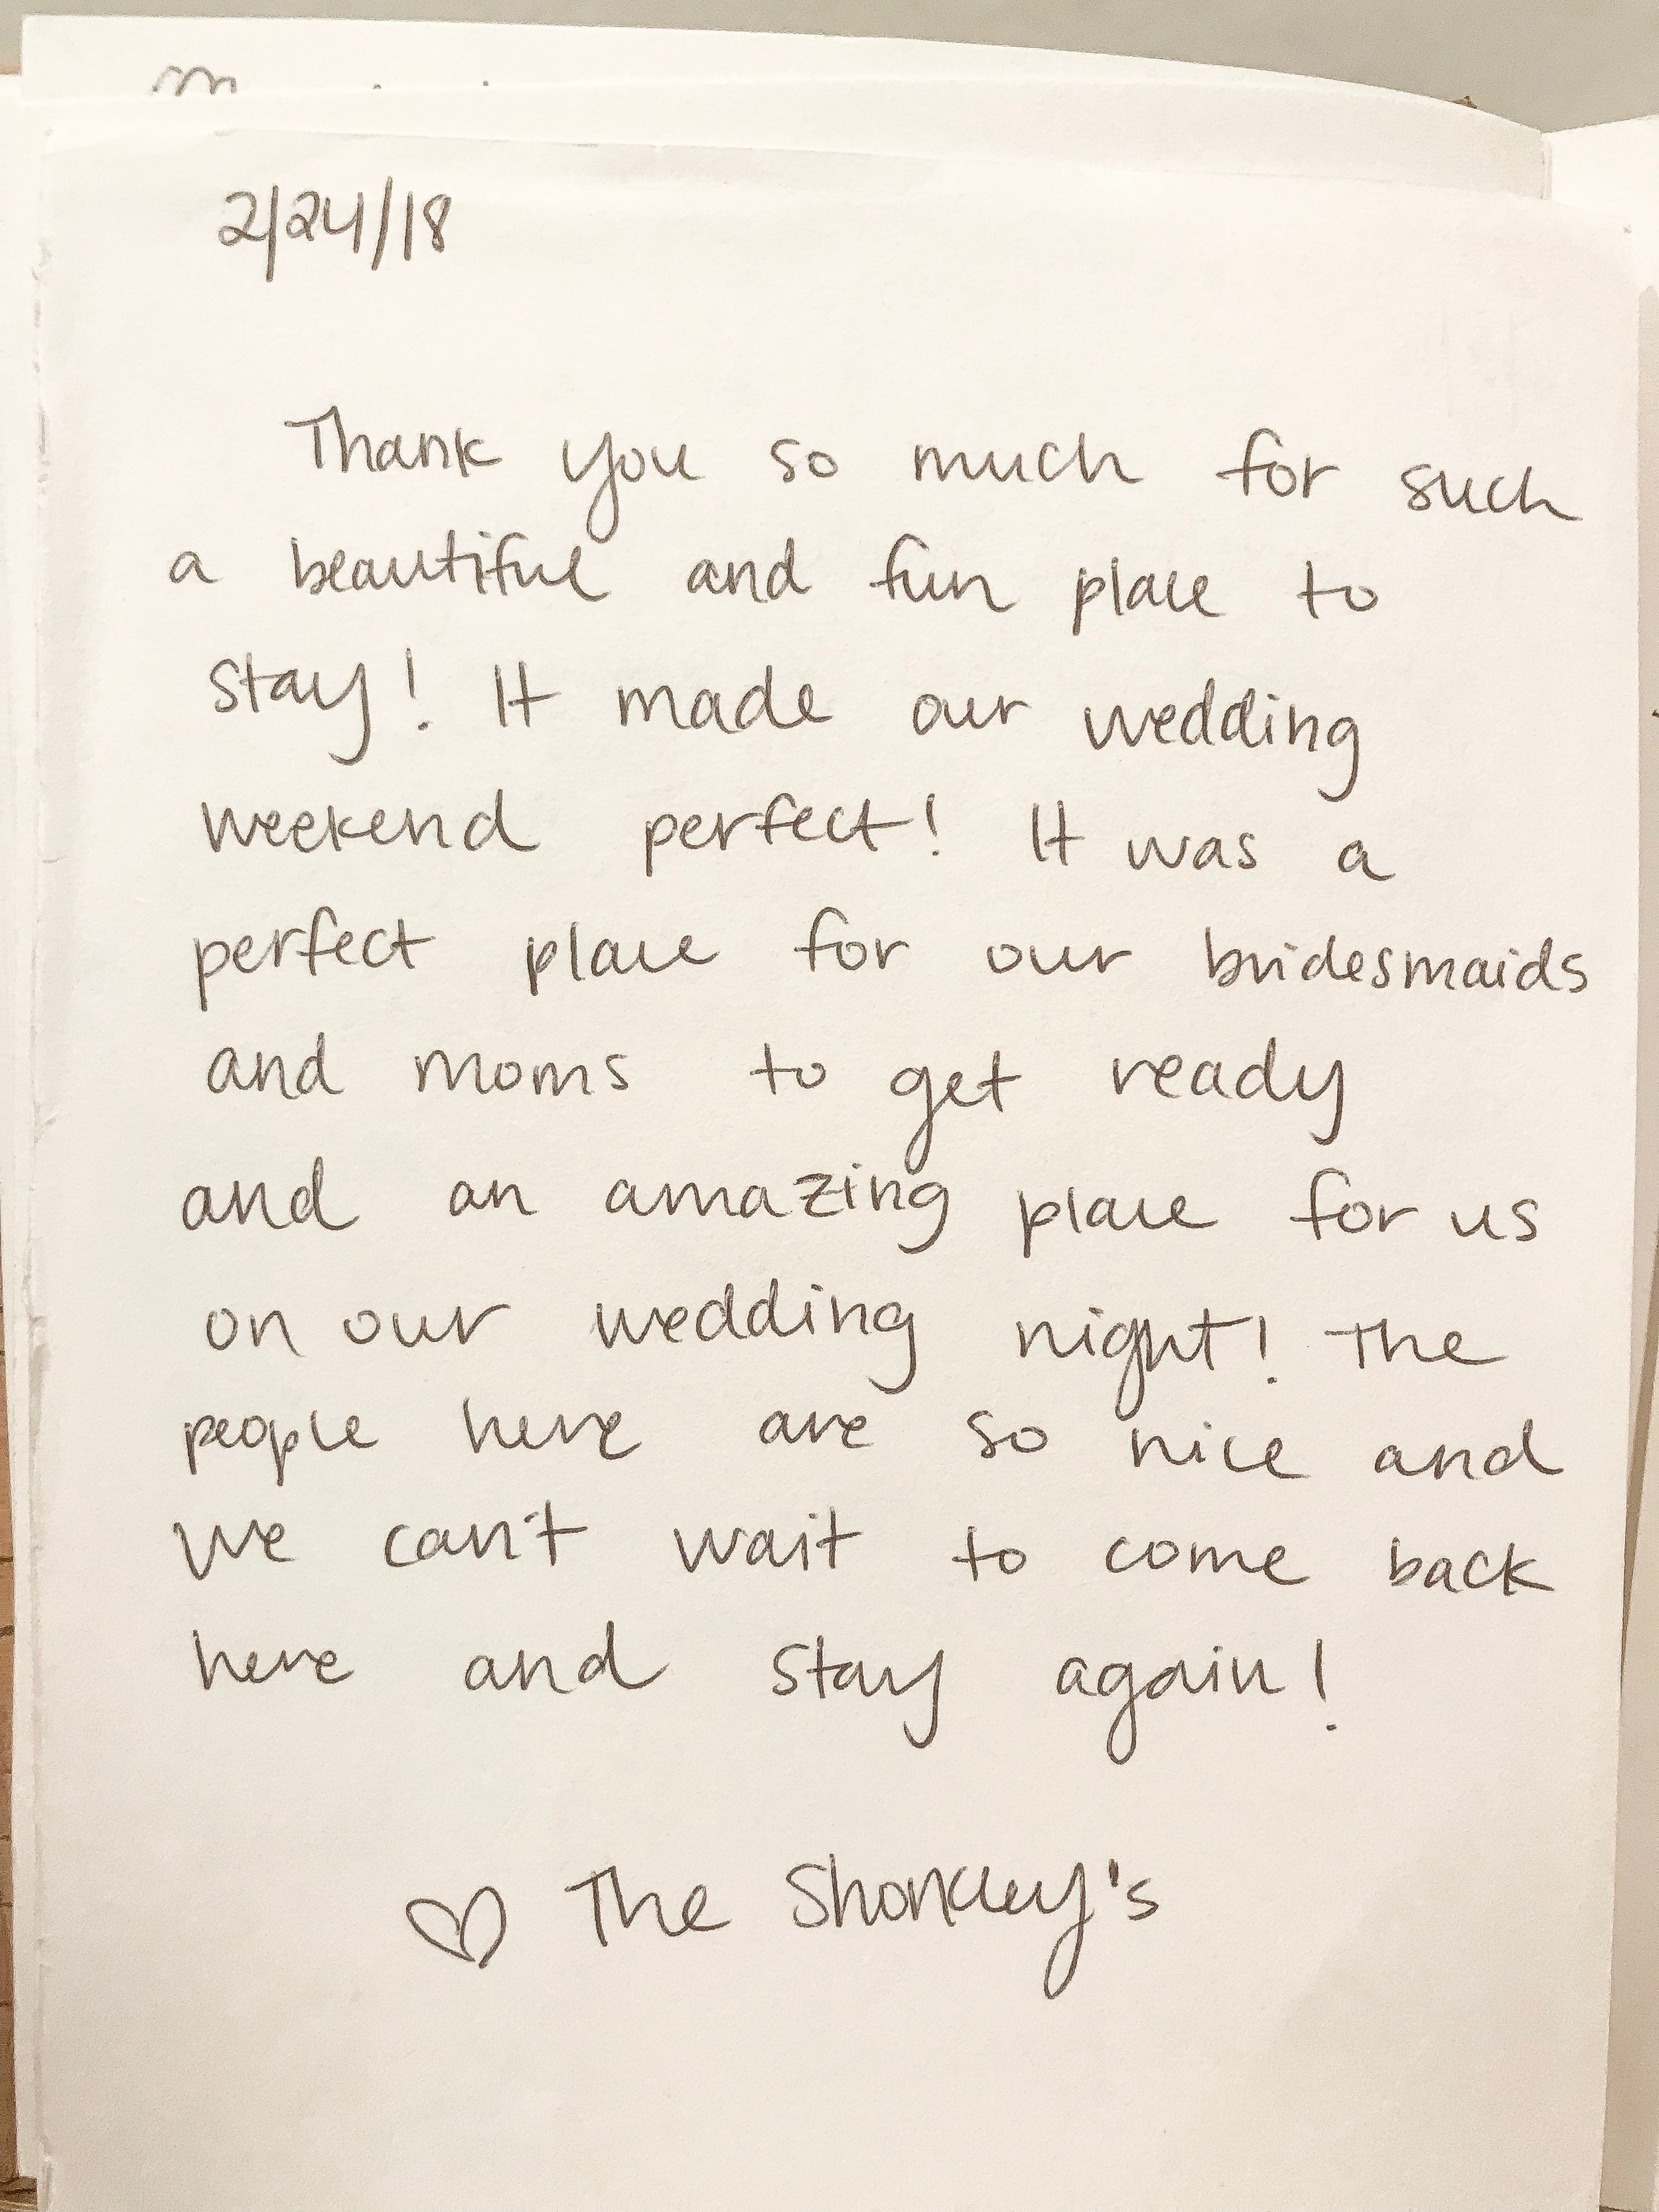 2/24/18
Thank you so much for such
a beautiful and fun place to
stay! It made our wedding
weekend perfect! It was a
perfect place for our bridesmaids
and moms to get ready
and an amazing place for us
on our wedding night! The
people here are so nice and
we can't wait to come back
here and stay again!
♡ The